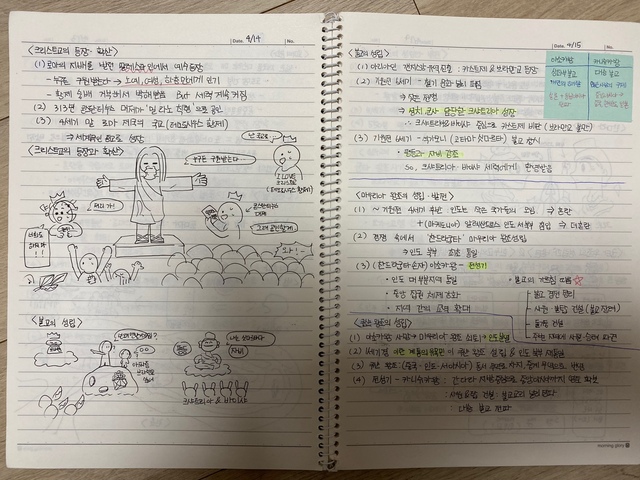 Date. 4/14 No.
<크리스트교의 등장·확산>
(1) 로마의 지배를 받던 팔레스타인에서 예수 등장
- 누구든 구원받는다 → 노예, 여성, 하층민에게 인기
- 황제 숭배 거부해서 박해받음 But 세력 계속 커짐
(2) 313년 콘스탄티누스 황제가 밀라노 칙령으로 공인
(3) 4세기 말 로마 제국의 국교 (테오도시우스 황제)
⇒ 세계적인 종교로 성장
<크리스트교의 등장과 확산>
누구든 구원받는다
I LOVE
크리스트교
콘스탄티누스
대제
와~!
<불교의 성립>
나는 석가모니다
자비!
크샤트리아 & 바이샤
Date. 4/15 No.
<불교의 성립>
(1) 아리아인 갠지스강 유역 진출 : 카스트제 & 브라만교 등장
(2) 기원전 6세기 - 철기
⇒ 잦은 전쟁
⇒ 정치·군사 담당한 크샤트리아 성장
∴ 크샤트리아& 바이샤 중심으로 카스트제 비판 (브라만교 불만)
(3) 기원전 6세기 - 석가모니 (고타마 싯다르타) 불교 창시
• 평등과 자비 강조
So, 크샤트리아· 바이샤 세력에게 환영받음
아소카왕
카니슈카왕
상좌부 불교
대승 불교
<마우리아 왕조의 성립·발전>
(1) ~ 기원전 4세기 후반 인도는 작은 국가들의 모임 → 혼란
+ (마케도니아) 알렉산드로스 인도 서북부 침입 ⇒ 더혼란
(2) 혼란 속에서 찬드라굽타 마우리아 왕조성립
⇒ 인도 북부 최초 통일
(3) (찬드라굽타 손자) 아소카왕 - 전성기
• 인도 대부분지역 통일
• 중앙 집권 체제 강화
• 지역 간의 교역 확대
• 불교의 가르침 따름 ☆
불교 경전 정리
사원·불탑 건설 (불교 장려)
돌기둥 건설
주변 지역에 사원·승려 파견
<쿠샨 왕조의 성립>
(1) 아소카왕 사망 → 마우리아 왕조 쇠퇴 → 인도분열
(2) 1세기경 이란 계통의 유목민이 쿠샨 왕조 성립 & 인도 북부 재통일
(3) 쿠샨 왕조 (중국·인도·서아시아) 동서 교역로 차지, 중계 무역으로 번영
(4) 전성기 - 카니슈카왕 : 간다라 지방 중심으로 중앙아시아까지 영토 확보
: 사원&탑 건설·불교 교리 널리 전파
: 대승 불교 전파
morning glory